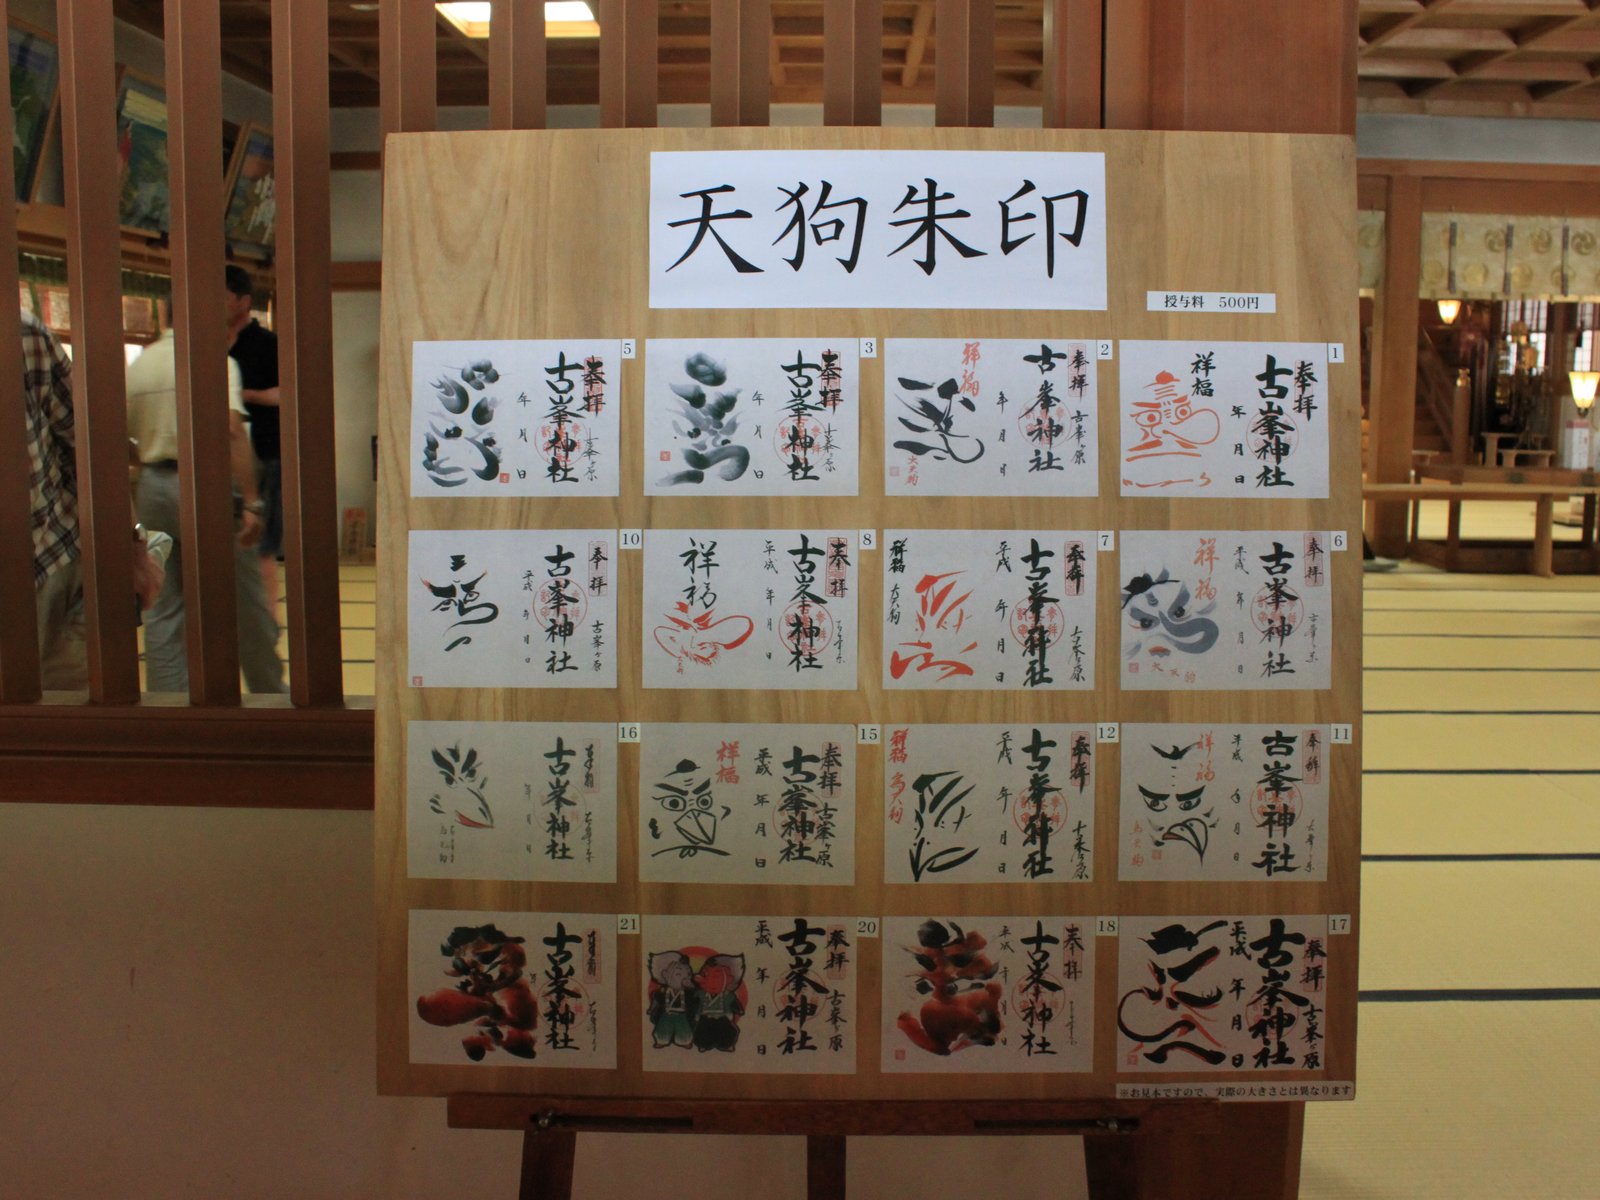 天狗朱印
授与料 500円
1
奉拝
古峯神社
祥福
年 月 日
2
奉拝
古峯ヶ原
古峯神社
年 月 日
祥福
大天狗
3
奉拝
古峯神社
年 月 日
5
奉拝
古峯神社
年 月 日
6
奉拝
古峯神社
平成 年 月 日
祥福
大天狗
7
奉拝
古峯神社
平成 年 月 日
祥福
大天狗
8
奉拝
古峯神社
平成 年 月 日
祥福
10
奉拝
古峯ヶ原
古峯神社
平成 年 月 日
11
奉拝
古峯神社
平成 年 月 日
祥福
烏天狗
12
奉拝
古峯神社
平成 年 月 日
祥福
烏天狗
15
奉拝
古峯ヶ原
古峯神社
平成 年 月 日
祥福
16
古峯神社
年 月 日
17
奉拝
古峯ヶ原
古峯神社
平成 年 月 日
18
奉拝
古峯神社
平成 年 月 日
20
奉拝
古峯ヶ原
古峯神社
平成 年 月 日
21
古峯神社
※お見本ですので、実際の大きさとは異なります